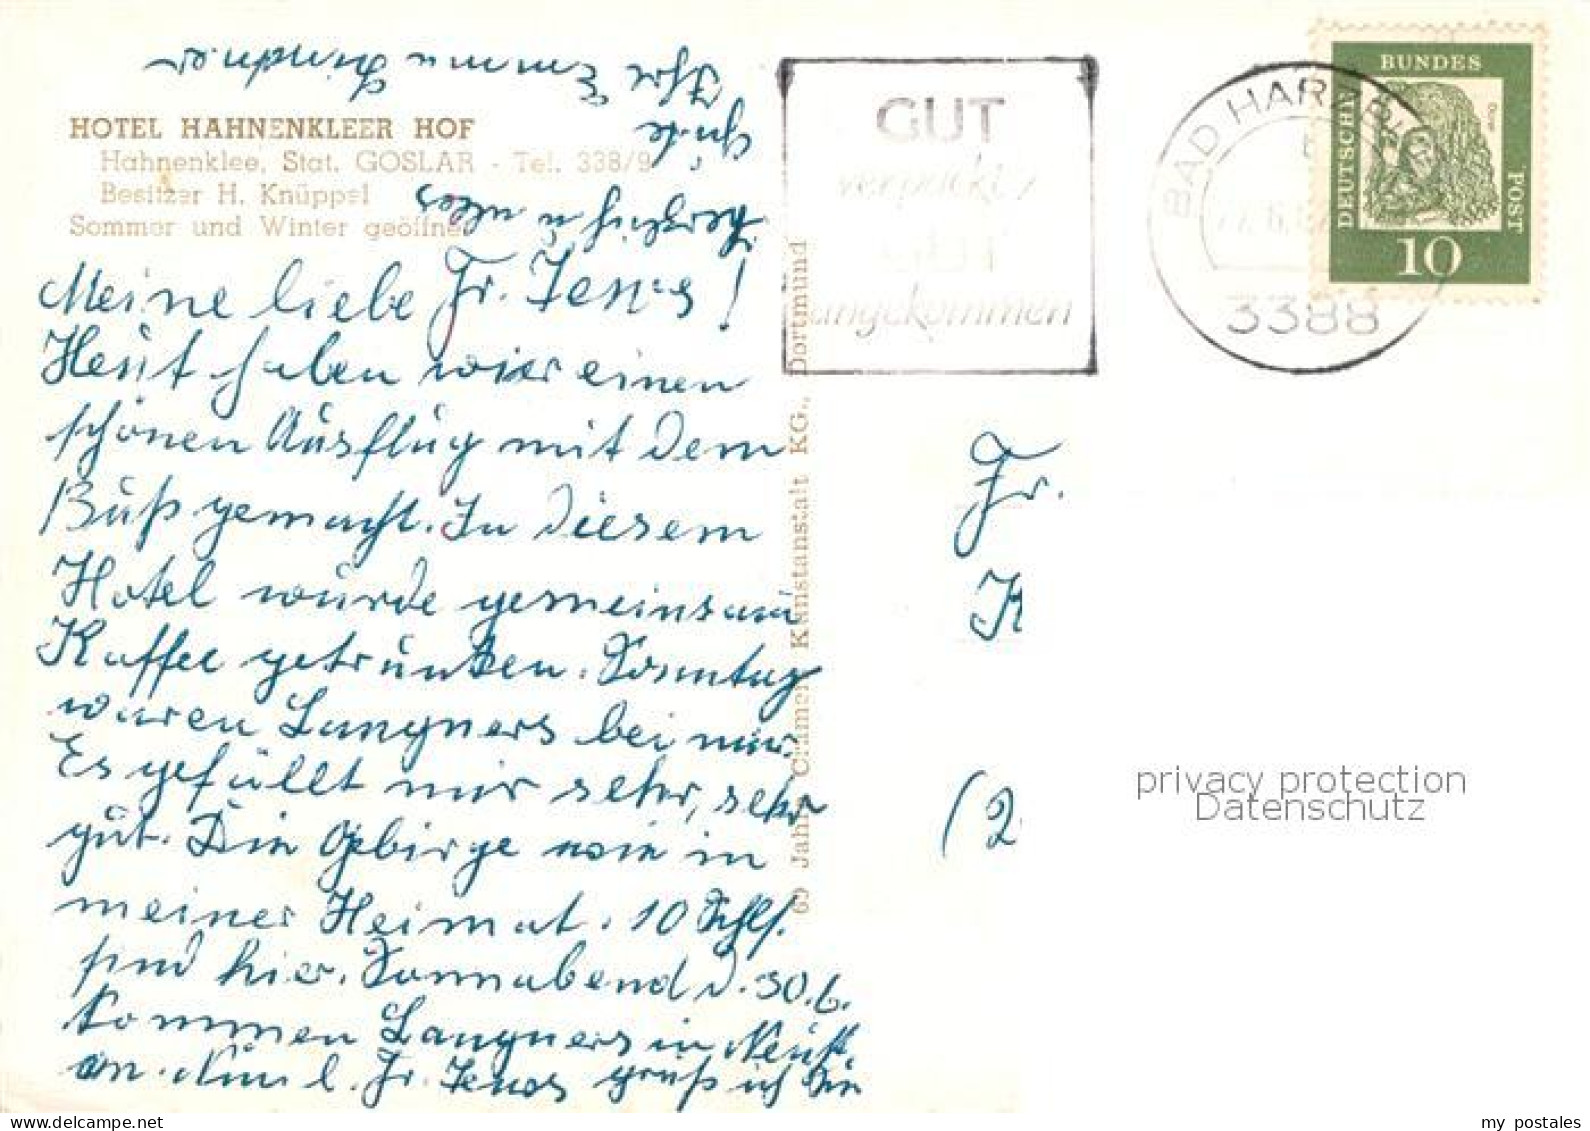 HOTEL HAHNENKLEER HOF
Hahnenklee, Stat. GOSLAR - Tel. 338/9
Besitzer H. Knüppel
Sommer und Winter geöffnet
Meine liebe Fr. Jenos!
Heut haben wir einen
schönen Ausflug mit dem
Buß gemacht. In diesem
Hotel wurde gemeinsam
Kaffee getrunken. Sonntag
waren Langners bei mir.
Es gefällt mir sehr, sehr
gut. Die Gebirge wie in
meiner Heimat. 10 Schls.
sind hier. Sonnabend d. 30.6.
kommen Langners in Neust.
an. Nun l. Fr. Jenos grüß ich Sie
herzlich u alles
Gute
Ihre Emma
69 Jahre Cramer Kunstanstalt KG., Dortmund
GUT
verpackt /
GUT
angekommen
BAD HARZBURG
3388
DEUTSCHE
BUNDES
POST
Dürer
10
Fr.
K
(2
privacy protection
Datenschutz
my postales